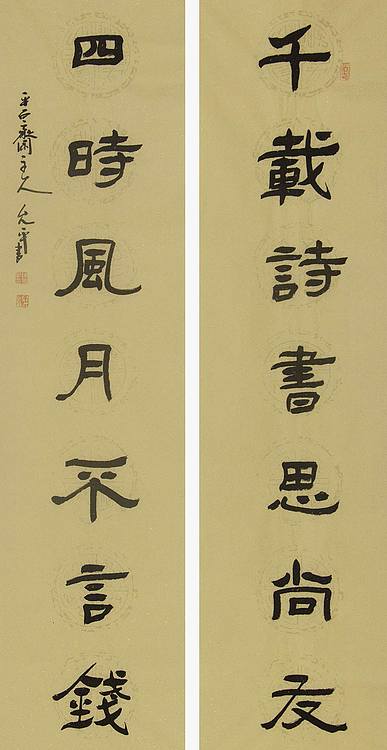 千載詩書思尚友
四時風月不言錢
齋主人 允平書